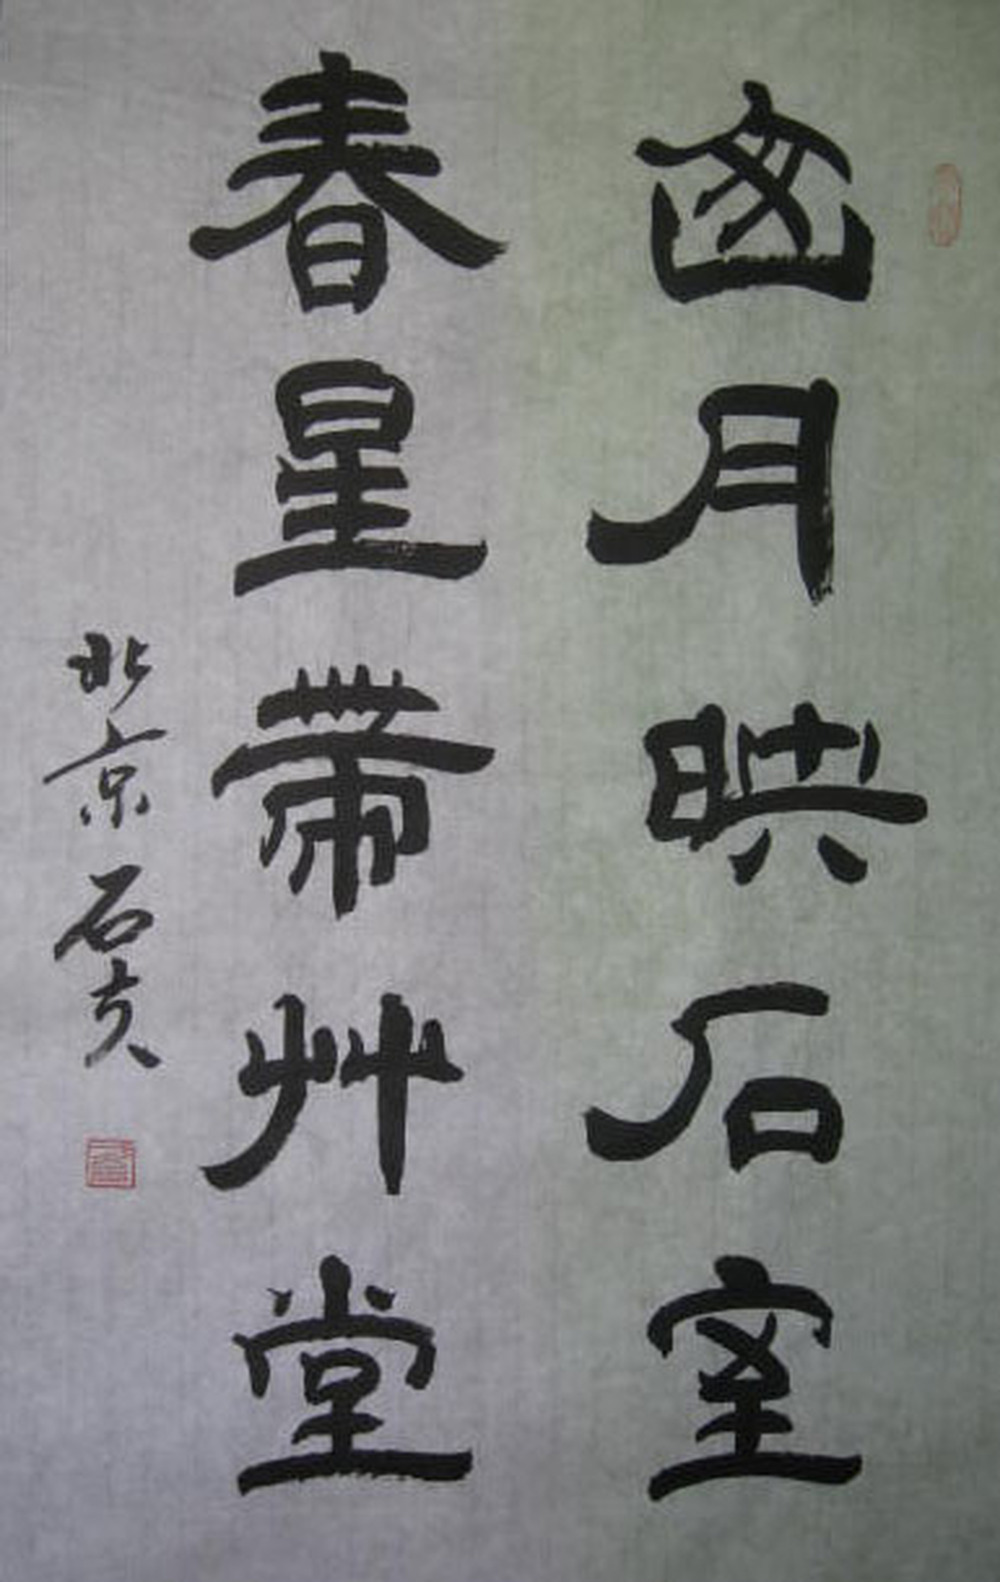 囪月映石室
春星帶艸堂
北京石夫